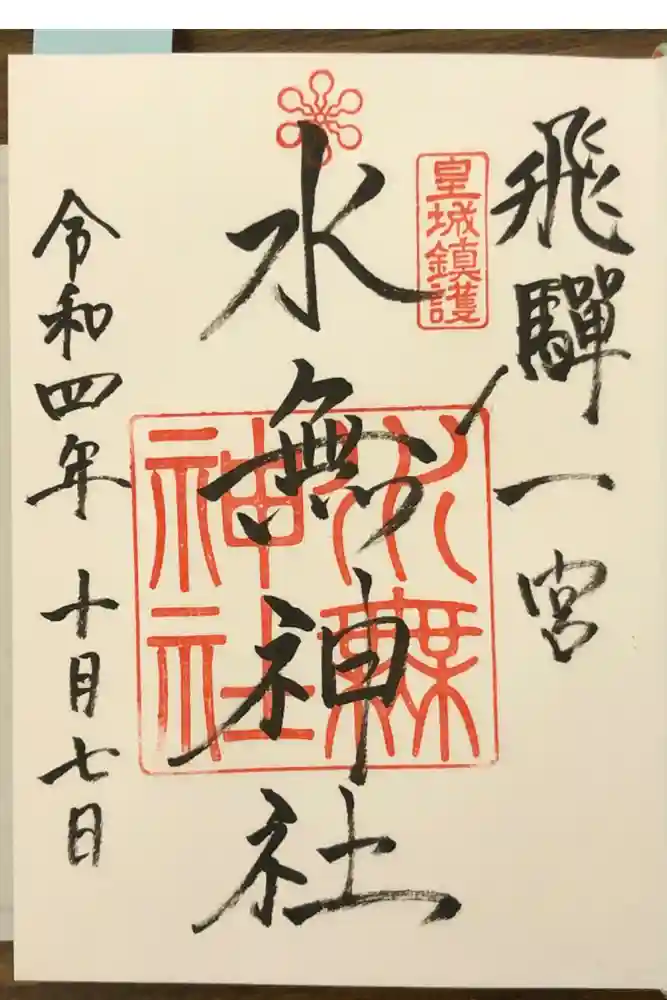 飛驒一宮
皇城鎮護
水無神社
水無神社
令和四年 十月七日